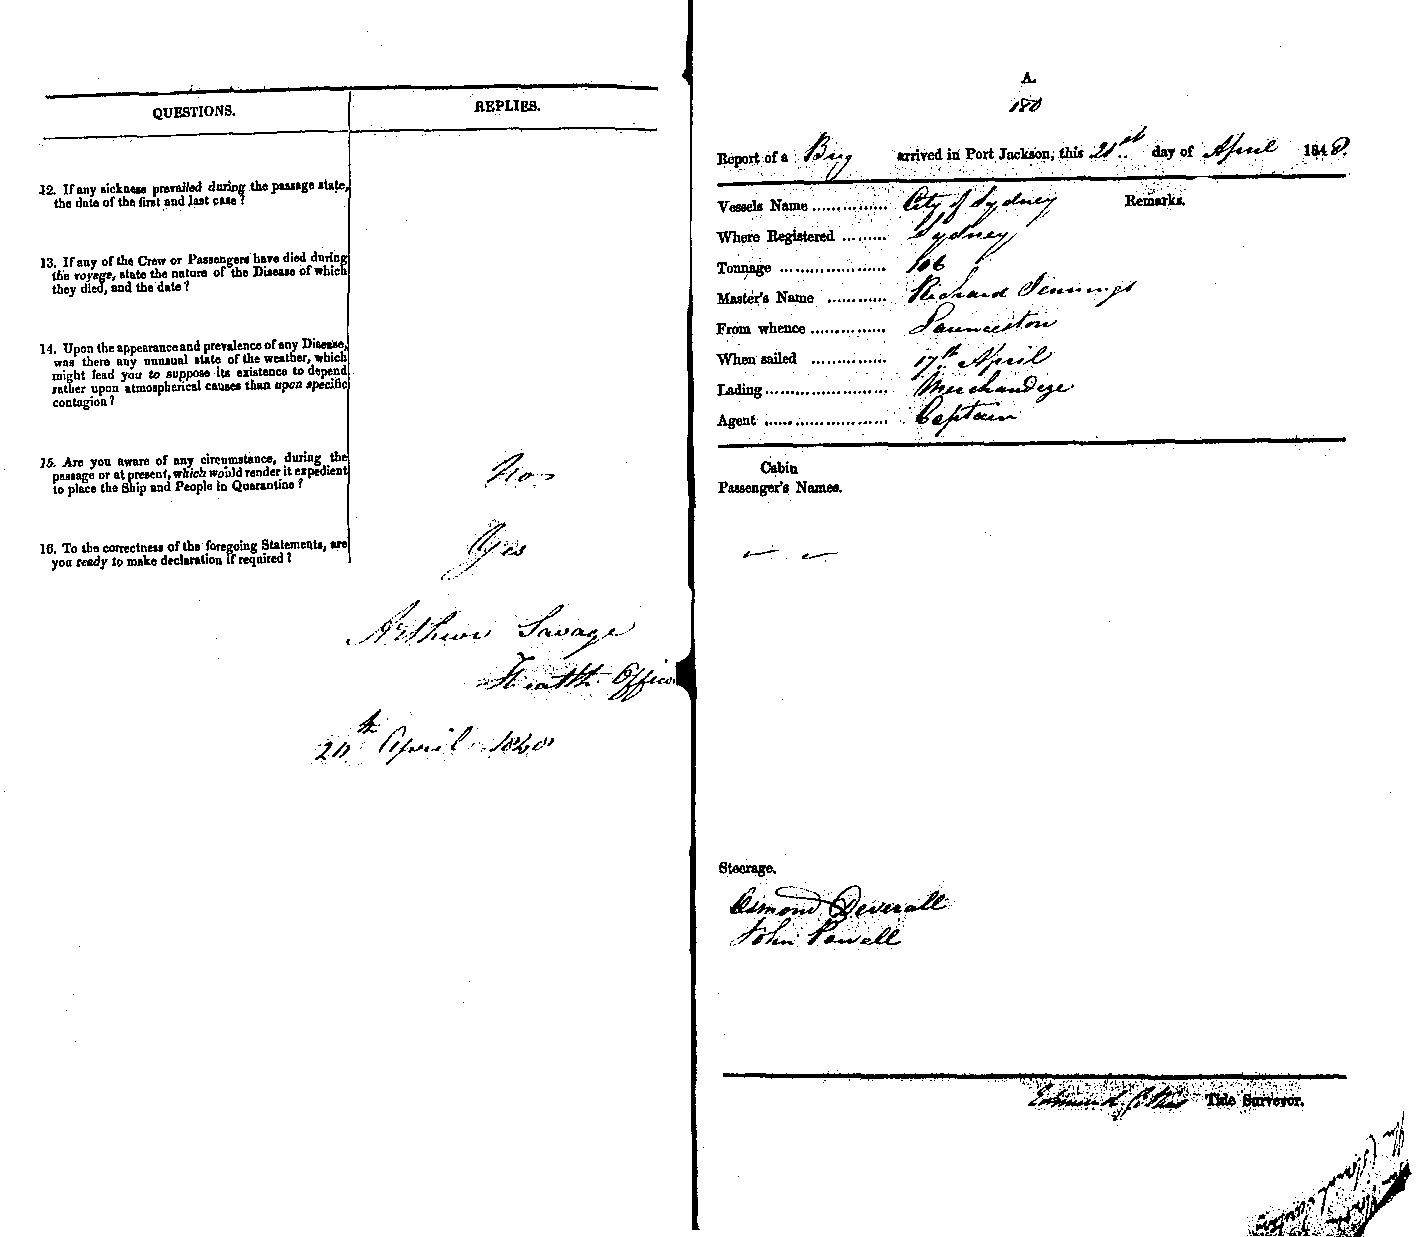 QUESTIONS.
REPLIES.
12. If any sickness prevailed during the passage state,
the date of the first and last case?
13. If any of the Crew or Passengers have died during
the voyage, state the nature of the Disease of which
they died, and the date?
14. Upon the appearance and prevalence of any Disease,
was there any unusual state of the weather, which
might lead you to suppose its existence to depend
rather upon atmospherical causes than upon specific
contagion?
15. Are you aware of any circumstance, during the
passage or at present, which would render it expedient
to place the Ship and People in Quarantine?
No
16. To the correctness of the foregoing Statements, are
you ready to make declaration if required?
Yes
Arthur Savage
Health Office
April 1848
A.
180
Report of a Brig arrived in Port Jackson, this 21st day of April 1848.
Vessels Name ............... City of Sydney Remarks.
Where Registered ......... Sydney
Tonnage ..................... 106
Master's Name ............ Richard Jennings
From whence ............... Launceston
When sailed ............... 17th April
Lading ........................ Merchandize
Agent ........................ Captain
Cabin
Passenger's Names.
Steerage.
Osmond Deverall
John Powell
Tide Surveyor.